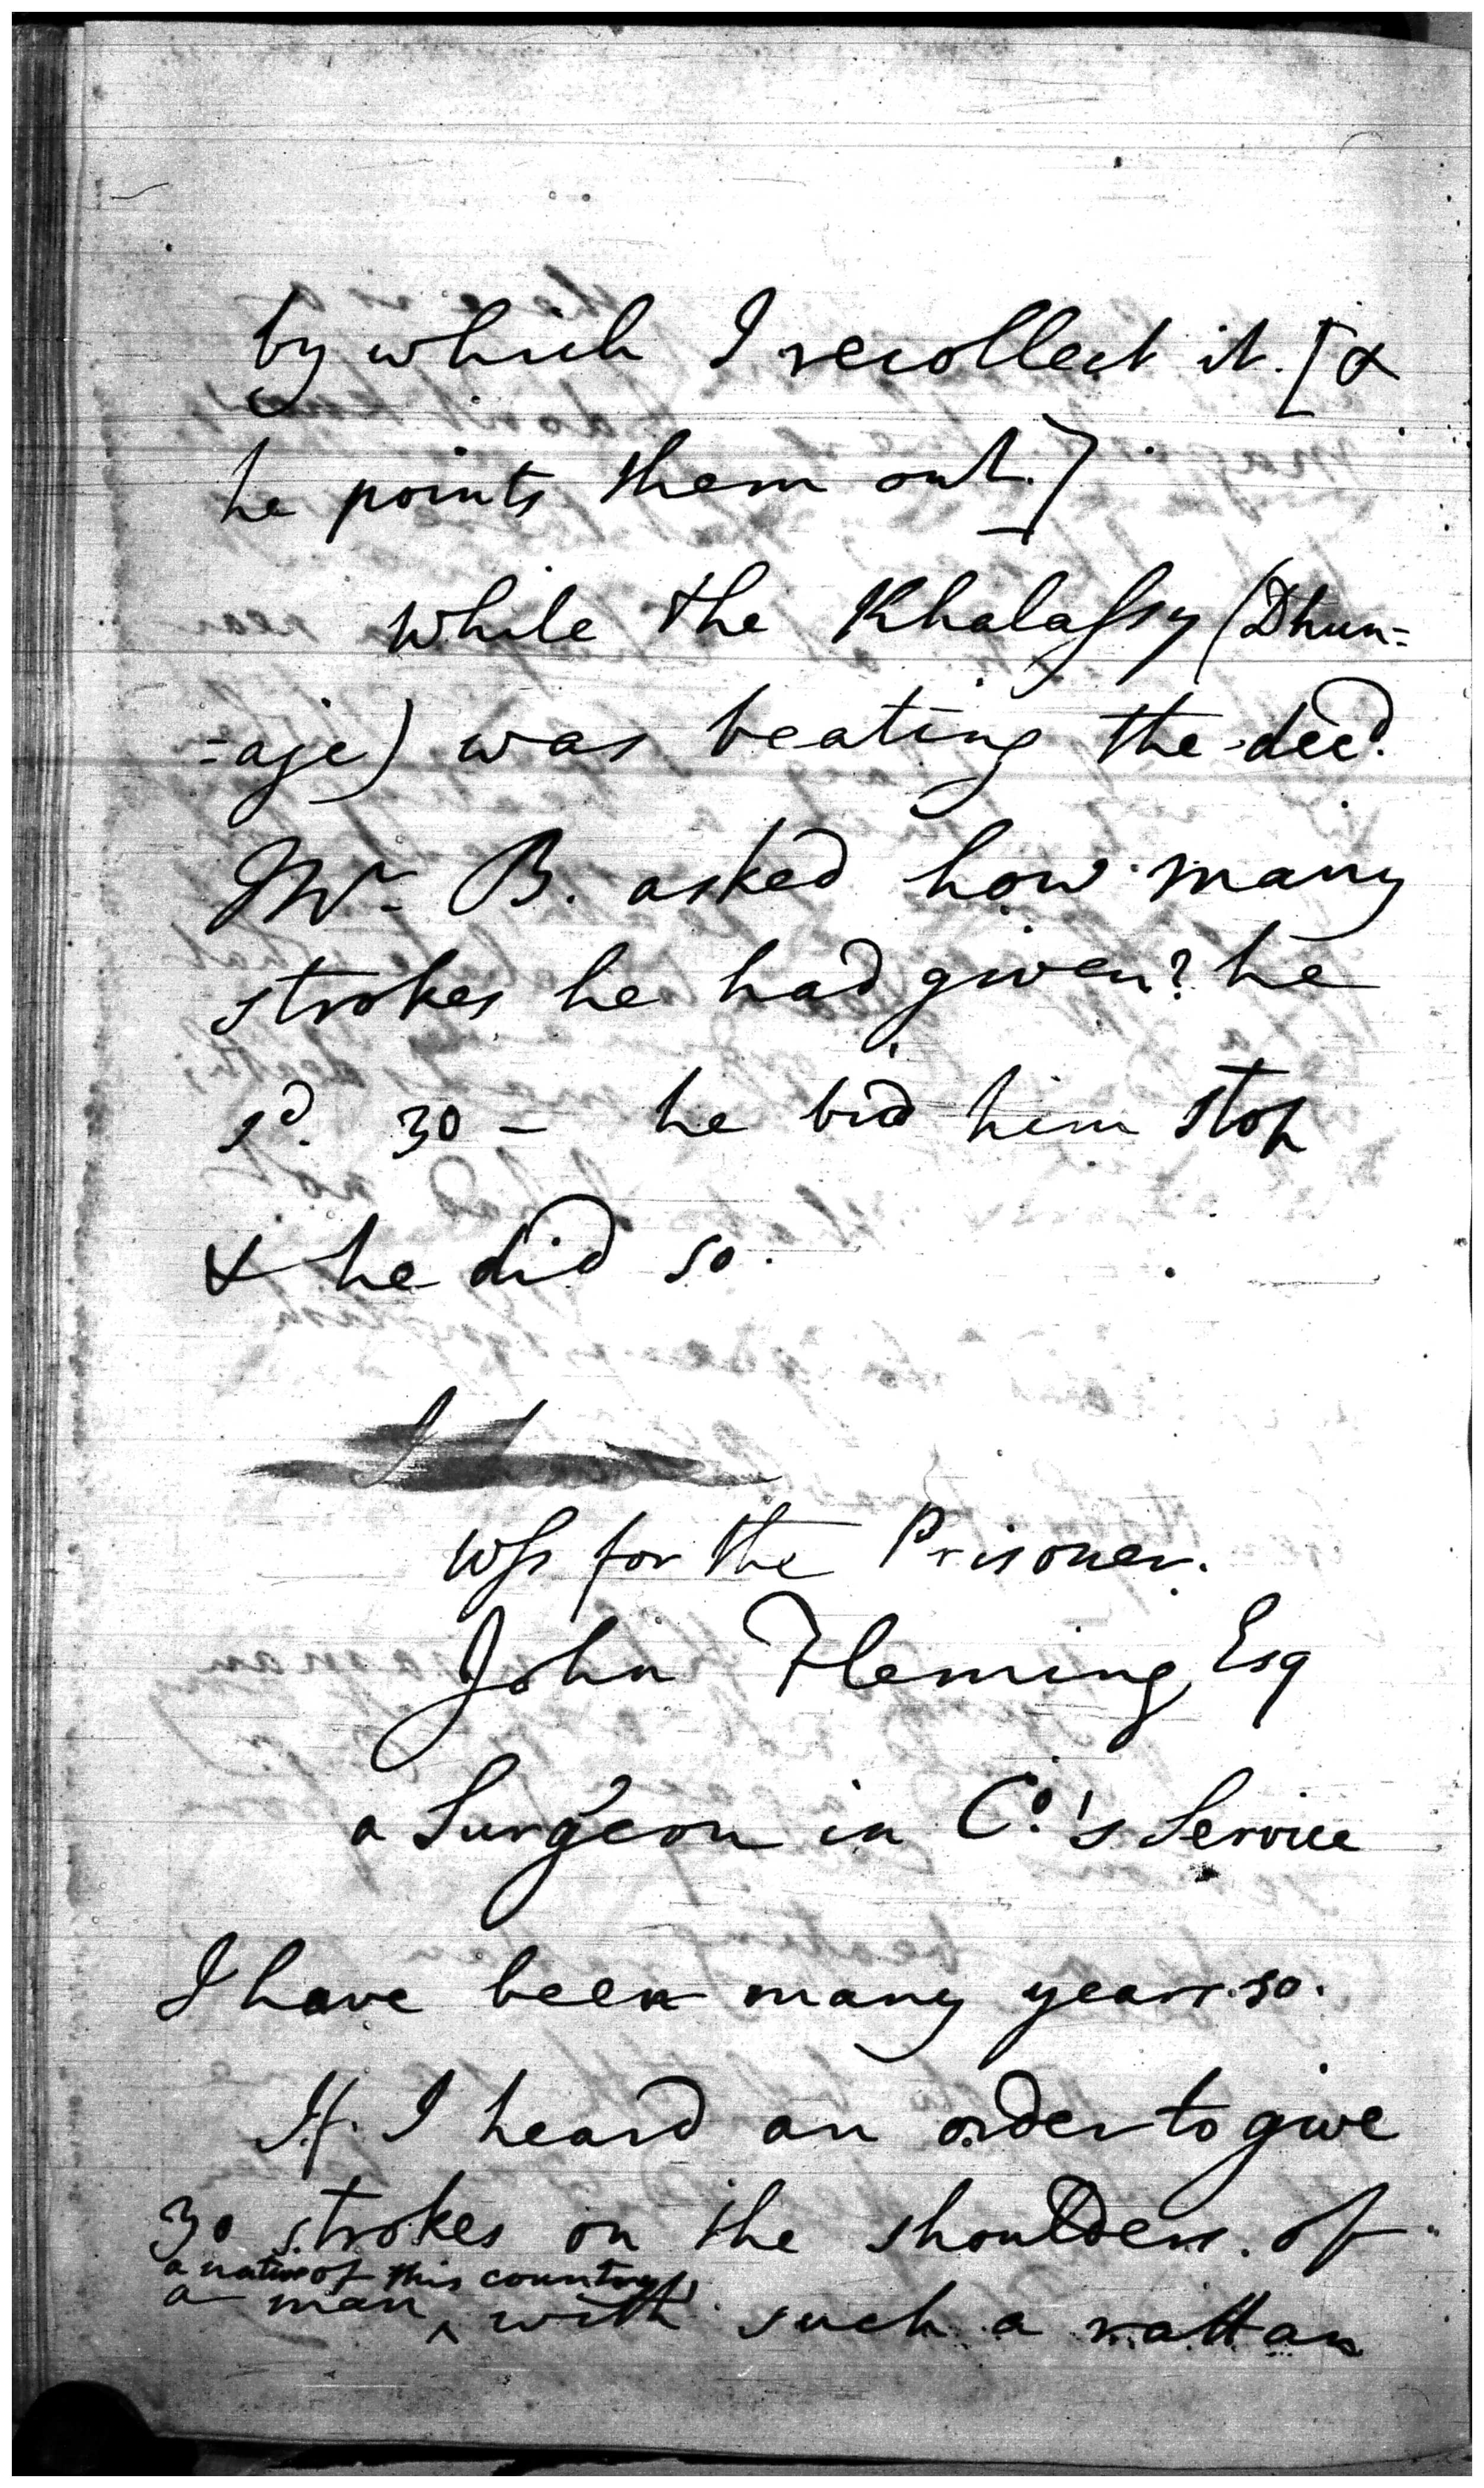 by which I recollect it. [&
he points them out.]
while the Khalassy (Dhun=
=aje) was beating the decd.
Mr. B. asked how many
strokes he had given? he
sd. 30 – he bid him stop
& he did so.
I
Wss for the Prisoner.
John Fleming Esq
a Surgeon in Co.'s Service
I have been many years so.
If I heard an order to give
30 strokes on the shoulders of
a native of this country
a man ^ with such a rattan